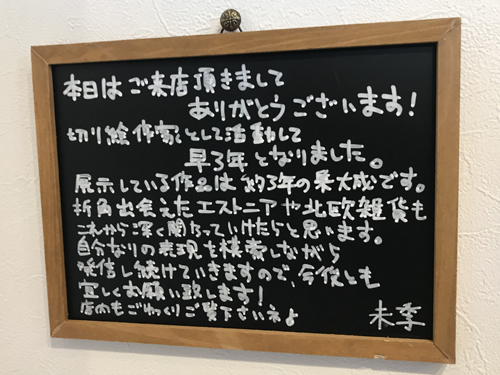 本日はご来店頂きまして
ありがとうございます!
切り絵作家として活動して
早3年となりました。
展示している作品は約3年の集大成です。
折角出会えたエストニアや北欧雑貨も
これから深く関わっていけたらと思います。
自分なりの表現を模索しながら
発信し続けていきますので、今後とも
宜しくお願い致します!
店内もごゆっくりご覧下さいネ♪
未季